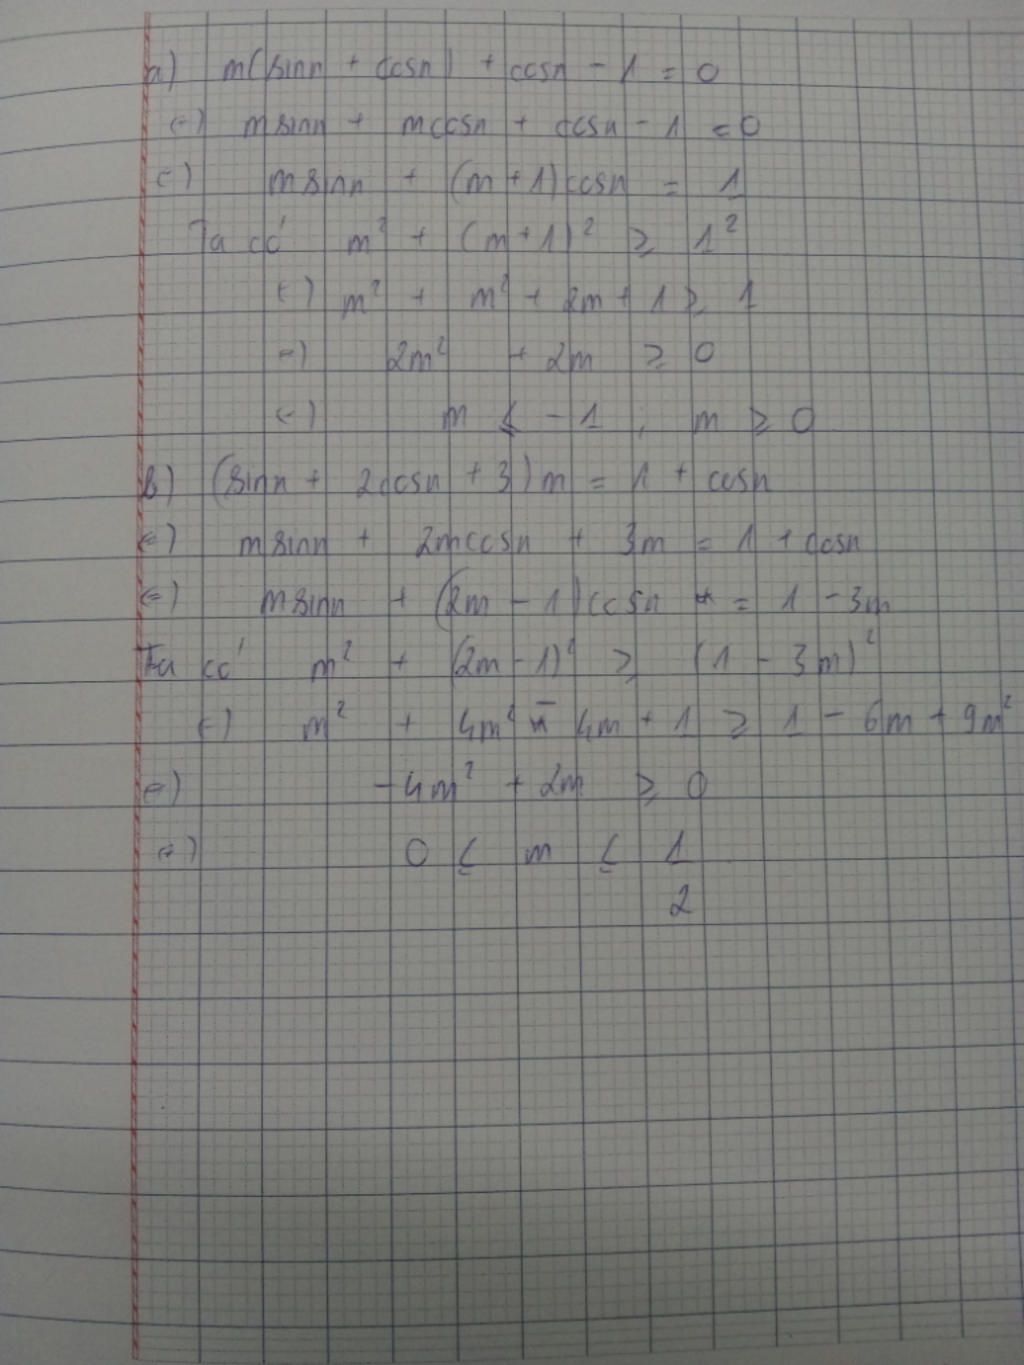 a) m(sinn + cosn) + cosn - 1 = 0
(=) msinn + mcosn + cosn - 1 = 0
(=) msinn + (m+1)cosn = 1
Ta có m² + (m+1)² ≥ 1²
(=) m² + m² + 2m + 1 ≥ 1
(=) 2m² + 2m ≥ 0
(=) m ≤ -1, m ≥ 0
b) (sinn + 2cosn + 3)m = 1 + cosn
(=) msinn + 2mcosn + 3m = 1 + cosn
(=) msinn + (2m - 1)cosn = 1 - 3m
Ta có m² + (2m - 1)² ≥ (1 - 3m)²
(=) m² + 4m² - 4m + 1 ≥ 1 - 6m + 9m²
(=) -4m² + 2m ≥ 0
(=) 0 ≤ m ≤ 1
2